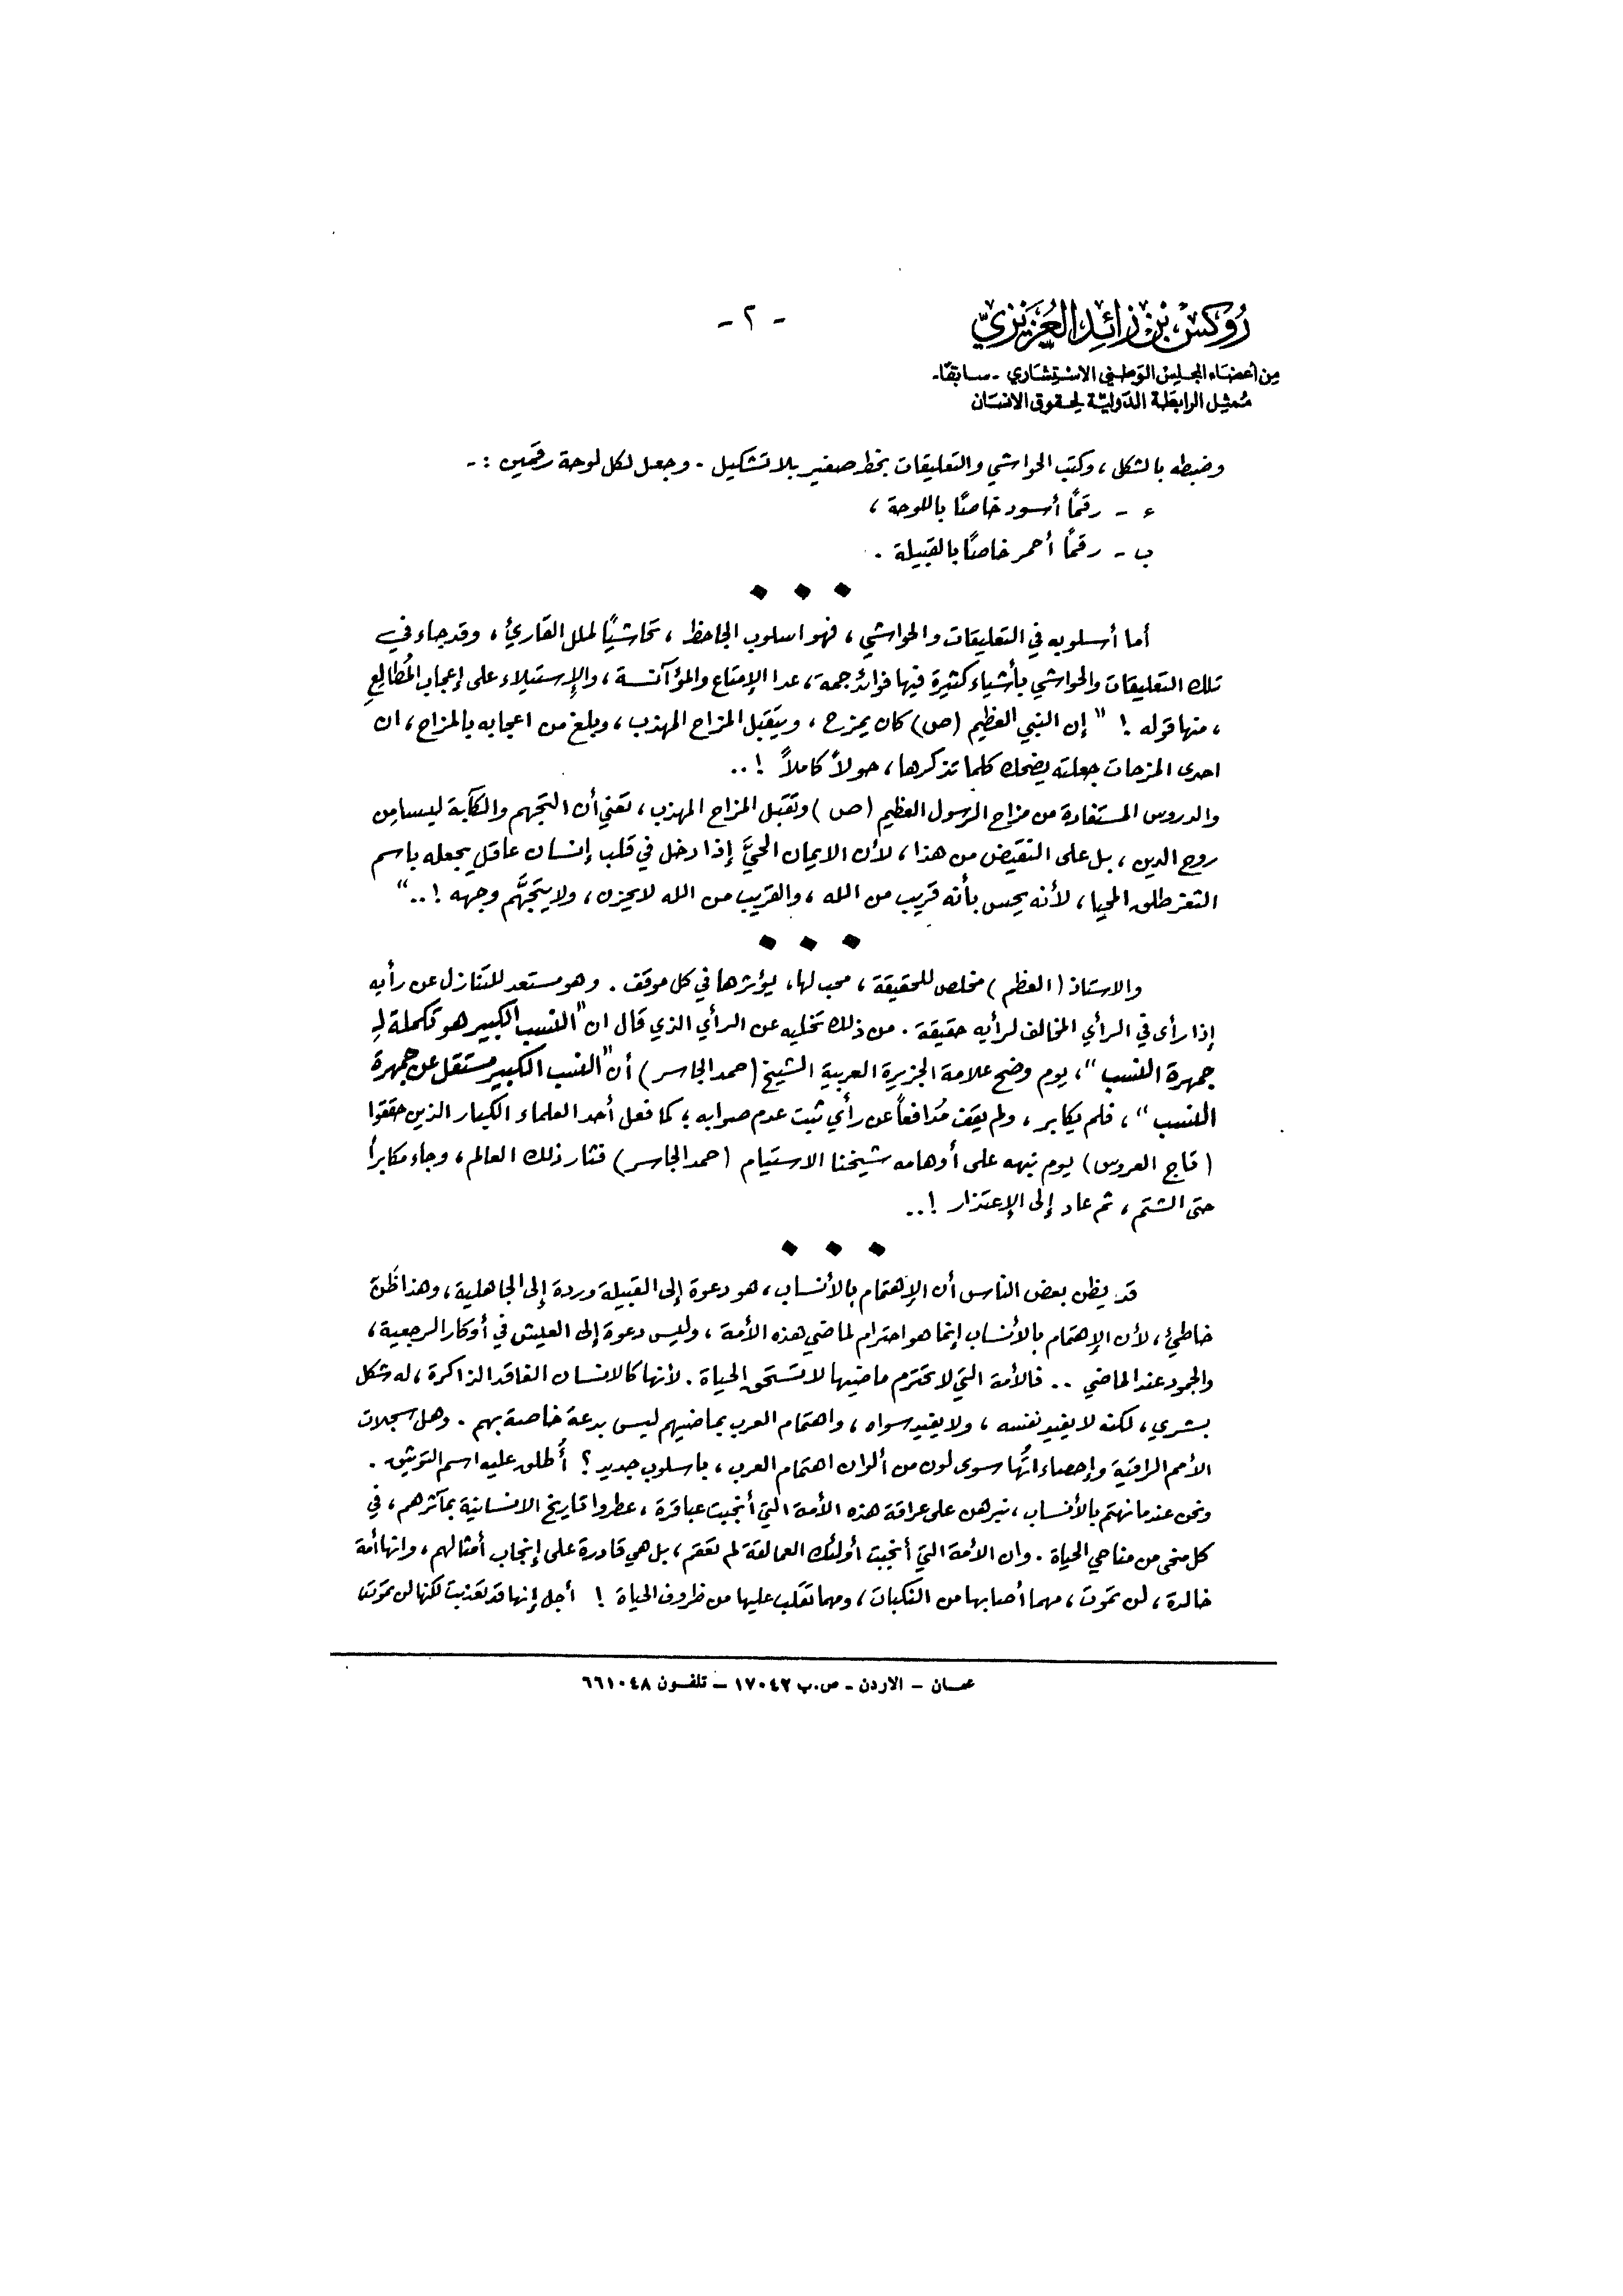 - ٢ -
رُوكسْ بنْ زائدِ العُزَيزيّ
مِن أعضَاء المجلِس الوَطني الاسْتِشاري - سَابقًا-
مُمثِل الرابطَة الدّوليّة لحقوق الانسَان
وضبطه بالشكل، وكتب الحواشي والتعليقات بخط صغير بلا تشكيل . وجعل لكل لوحة رقمين : -
ء - رقمًا أسود خاصًا باللوحة ،
ب - رقمًا أحمر خاصًا بالقبيلة .
أما أسلوبه في التعليقات والحواشي ، فهو اسلوب الجاحظ ، تحاشيًا لملل القارئ ، وقد جاء في
تلك التعليقات والحواشي بأشياء كثيرة فيها فوائد جمة ، عدا الإمتاع والمؤآنسة ، والإستيلاء على إعجاب المُطالِعِ
، منها قوله ! " إن النبي العظيم (ص) كان يمزح ، ويتقبل المزاح المهذب ، وبلغ من اعجابه بالمزاح ، ان
احدى المزحات جعلته يضحك كلما تذكرها ، حولاً كاملاً ! ..
والدروس المستفادة من مزاح الرسول العظيم (ص) وتقبل المزاح المهذب ، تعني أن التجهم والكآبة ليسا من
روح الدين ، بل على النقيض من هذا ، لأن الايمان الحيَّ إذا دخل في قلب إنسان عاقل يجعله باسم
الثغر طلق المحيا ، لأنه يحس بأنه قريب من الله ، والقريب من الله لا يحزن ، ولا يتجهَّم وجهه ! .. "
والاستاذ (العظم) مخلص للحقيقة ، محب لها، يؤثرها في كل موقف . وهو مستعد للتنازل عن رأيه
إذا رأى في الرأي المخالف لرأيه حقيقة . من ذلك تخليه عن الرأي الذي قال ان " النسب الكبير هو تكملة لِـ
جمهرة النسب " ، يوم وضح علامة الجزيرة العربية الشيخ (حمد الجاسر) أن " النسب الكبير مستقل عن جمهرة
النسب " ، فلم يكابر ، ولم يقف مُدافعاً عن رأي ثبت عدم صوابه ؛ كما فعل أحد العلماء الكبار الذين حققوا
(تاج العروس) يوم نبهه على أوهامه شيخنا الاستيام (حمد الجاسر) فثار ذلك العالم ، وجاء مكابراً
حتى الشتم ، ثم عاد إلى الإعتذار ! ..
قد يظن بعض الناس أن الإهتمام بالأنساب ، هو دعوة إلى القبيلة وردة إلى الجاهلية ، وهذا ظَنٌ
خاطئ ، لأن الإهتمام بالأنساب إنما هو احترام لماضي هذه الأمة ، وليس دعوة إلى العيش في أوكار الرجعية ،
والجمود عند الماضي .. فالأمة التي لا تحترم ماضيها لا تستحق الحياة . لأنها كالانسان الفاقد الذاكرة ، له شكل
بشري ، لكنه لا يفيد نفسه ، ولا يفيد سواه ، واهتمام العرب بماضيهم ليس بدعة خاصة بهم . وهل سجلات
الأمم الراقية وإحصاءاتُها سوى لون من ألوان اهتمام العرب ، باسلوب جديد ؟ أُطلق عليه اسم التوثيق .
ونحن عندما نهتم بالأنساب ، نبرهن على عراقة هذه الأمة التي أنجبت عباقرة ، عطروا تاريخ الانسانية بمآثرهم ، في
كل منحى من مناحي الحياة . وان الأمة التي أنجبت أولئك العمالقة لم تعقم ، بل هي قادرة على إنجاب أمثالهم ، وانها أمة
خالدة ، لن تموت ، مهما أصابها من النكبات ، ومهما تقلب عليها من ظروف الحياة ! أجل إنها قد تعذبت لكنها لن تموت
عمان - الاردن - ص.ب ١٧٠٤٢ - تلفون ٦٦١٠٤٨